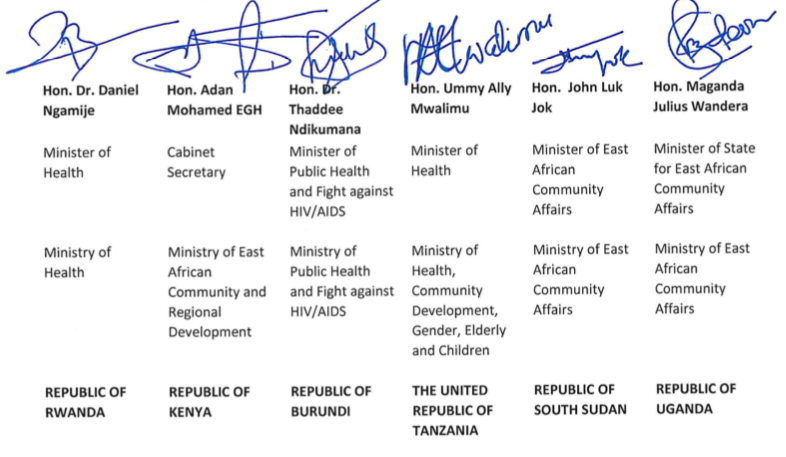 Hon. Dr. Daniel
Ngamije
Minister of
Health
Ministry of
Health
REPUBLIC OF
RWANDA
Hon. Adan
Mohamed EGH
Cabinet
Secretary
Ministry of East
African
Community and
Regional
Development
REPUBLIC OF
KENYA
Hon. Dr.
Thaddee
Ndikumana
Minister of
Public Health
and Fight against
HIV/AIDS
Ministry of
Public Health
and Fight against
HIV/AIDS
REPUBLIC OF
BURUNDI
Hon. Ummy Ally
Mwalimu
Minister of
Health
Ministry of
Health,
Community
Development,
Gender, Elderly
and Children
THE UNITED
REPUBLIC OF
TANZANIA
Hon. John Luk
Jok
Minister of East
African
Community
Affairs
Ministry of East
African
Community
Affairs
REPUBLIC OF
SOUTH SUDAN
Hon. Maganda
Julius Wandera
Minister of State
for East African
Community
Affairs
Ministry of East
African
Community
Affairs
REPUBLIC OF
UGANDA